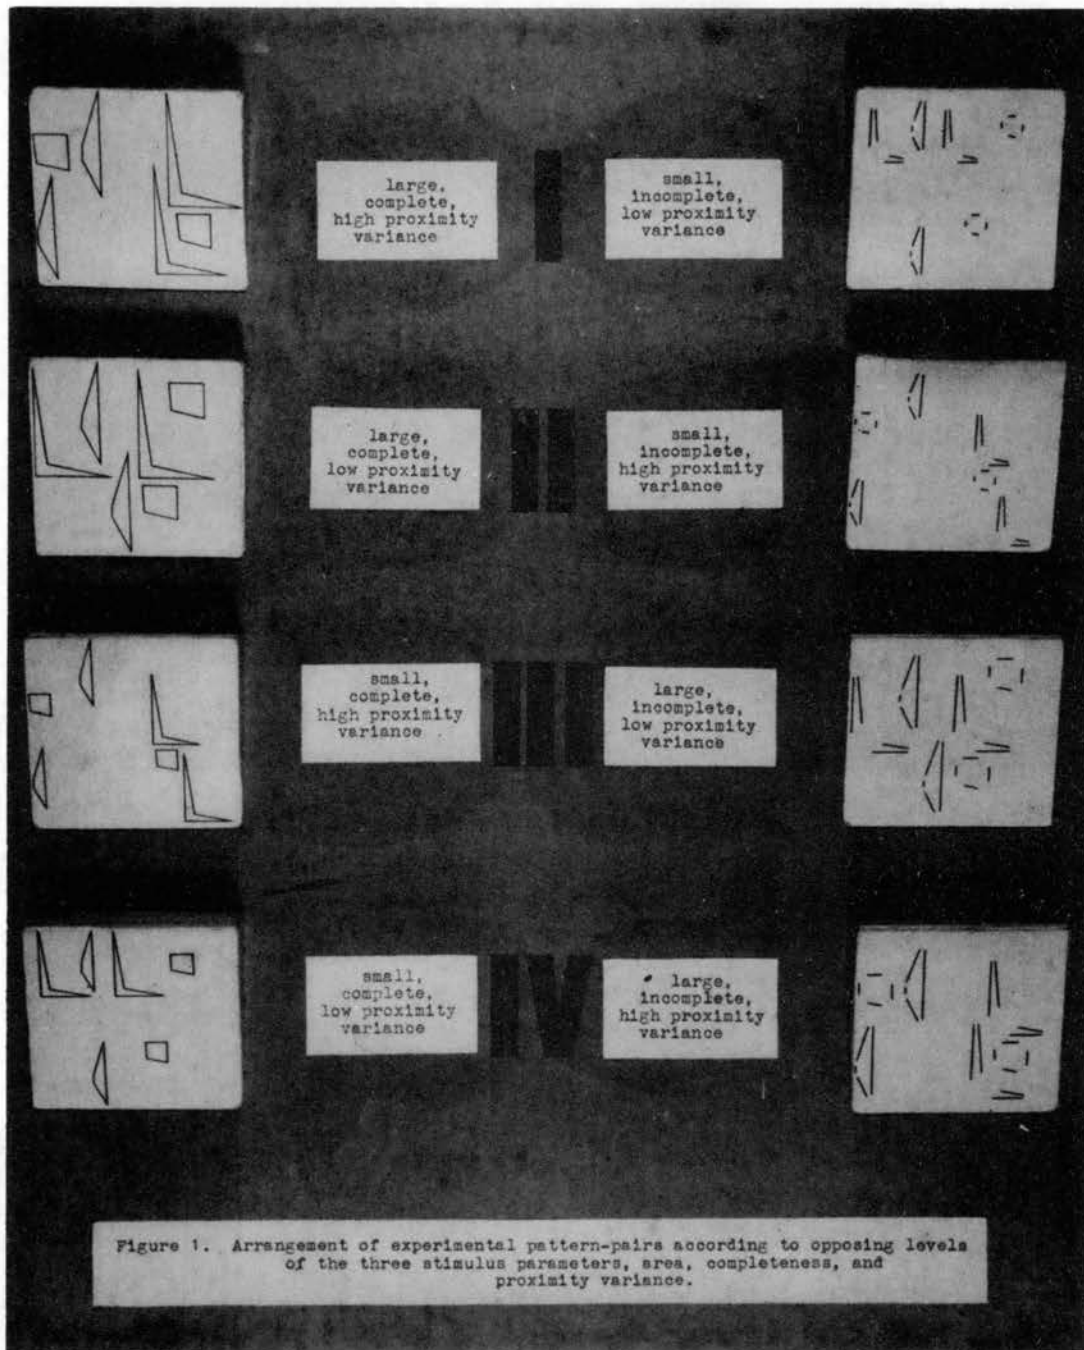 large,
complete,
high proximity
variance
I
small,
incomplete,
low proximity
variance
large,
complete,
low proximity
variance
II
small,
incomplete,
high proximity
variance
small,
complete,
high proximity
variance
III
large,
incomplete,
low proximity
variance
small,
complete,
low proximity
variance
IV
large,
incomplete,
high proximity
variance
Figure 1. Arrangement of experimental pattern-pairs according to opposing levels
of the three stimulus parameters, area, completeness, and
proximity variance.